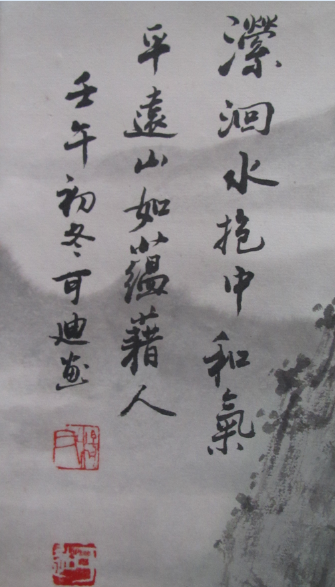 瀠洄水抱中和氣
平遠山如蘊藉人
壬午初冬可迪畫